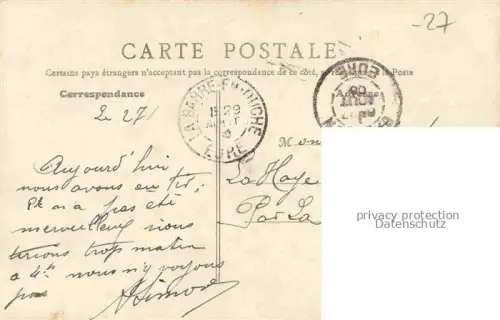 -27
CARTE POSTALE
Certains pays étrangers n'acceptant pas la correspondance de ce côté, se renseigner à la Poste
Correspondance
Le 27
LA BARRE-EN-OUCHE
29
AOUT
EURE
EURE
Mon
Aujourd'hui
nous avons au tir,
n'a pas été
merveilleux nous
tirions trop matin
a 4h nous n'y voyons
pas ASimon
La Haye
Par La
privacy protection
Datenschutz